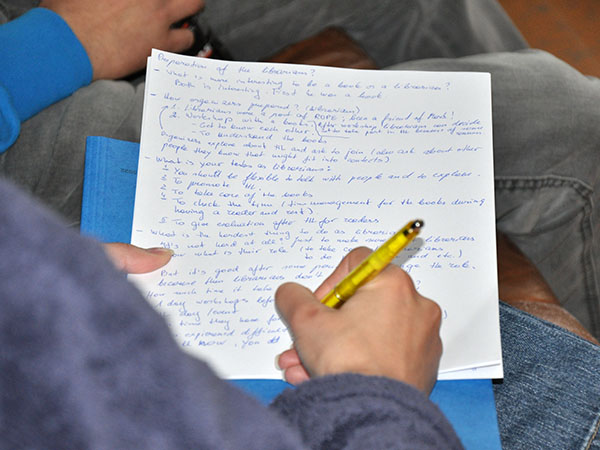 Preparation of the librarians?
- What is more interesting to be a book or a librarian?
Both is interesting. First to be a book
- How organisers prepared? (librarians)
1. Librarians were a part of
2. Workshop with a books, after workshop librarians can decide
- Get to know each other. to take part in the
- To understand the books
Organisers explane about HL and ask to join (also ask about other
people they know that might fit into contexts)
- What is your tasks as librarians?
1 You should be flexible to talk with people and to explane
2 To promote HL.
3 To take care of the books
4 To check the time (time management for the books during
having a reader and rest)
5 To give evaluation after HL for readers
- What is the hardest thing to do as librarian
It's not hard at all? just to make librarians
know what is their role (to take care
to do and etc.)
But it's good after some the role,
because then librarians don't
How much time it take ?
day workshops before
day event
time they have for
experienced difficult
know, you